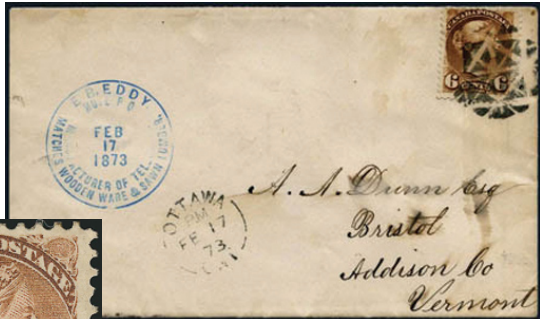 CANADA POSTAGE
6 CENTS 6
E. B. EDDY
HULL P.Q.
FEB
17
1873
MANUFACTURER OF TEL.
MATCHES WOODEN WARE & SAWN LUMBER.
OTTAWA
PM
FE 17
73
A. A. Dunn Esq
Bristol
Addison Co
Vermont
POSTAGE